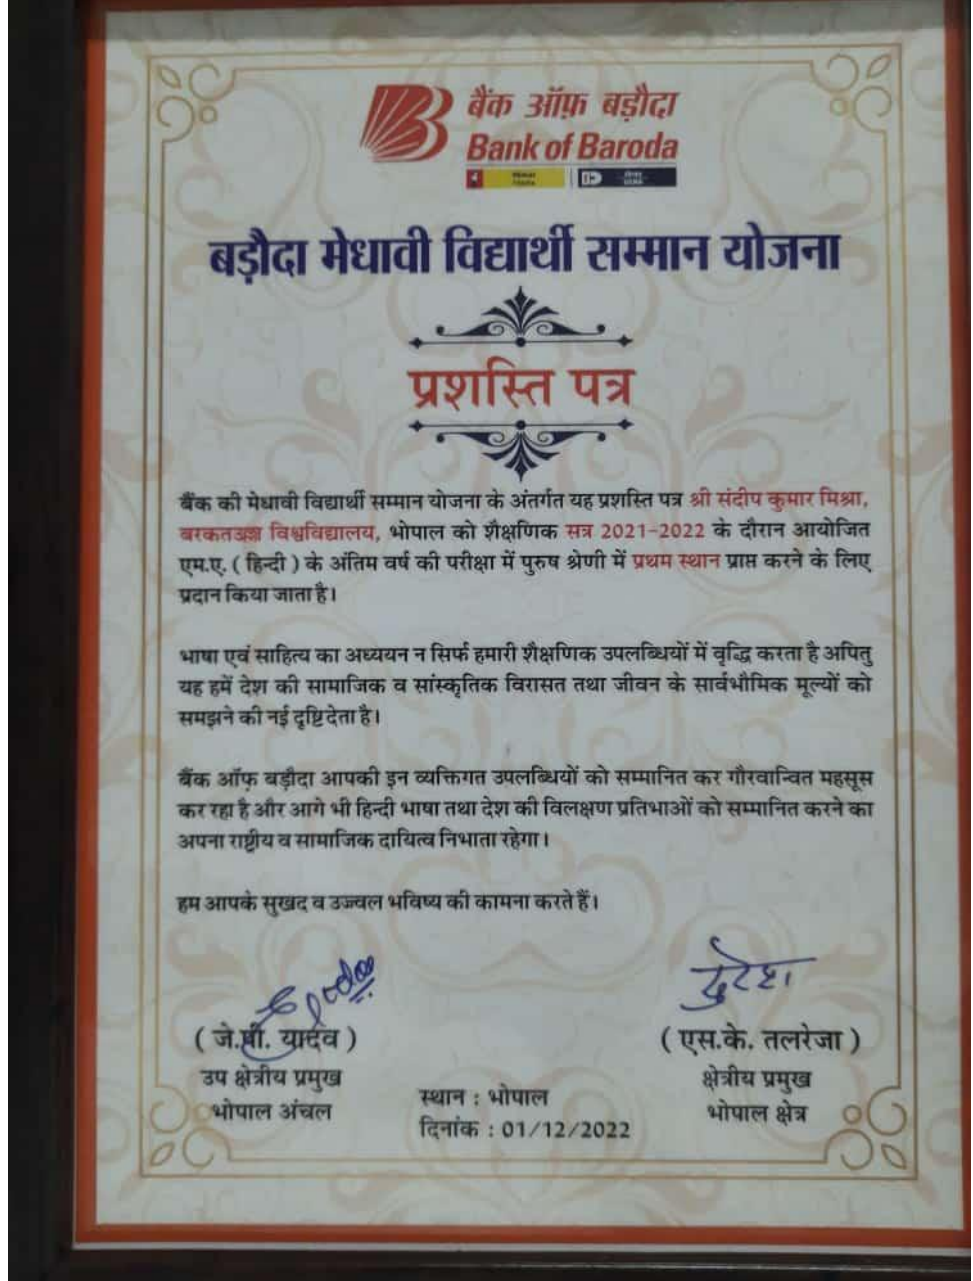 बैंक ऑफ़ बड़ौदा
Bank of Baroda
बड़ौदा मेधावी विद्यार्थी सम्मान योजना
प्रशस्ति पत्र
बैंक की मेधावी विद्यार्थी सम्मान योजना के अंतर्गत यह प्रशस्ति पत्र श्री संदीप कुमार मिश्रा,
विश्वविद्यालय, भोपाल को शैक्षणिक सत्र 2021-2022 के दौरान आयोजित
एम.ए. ( हिन्दी ) के अंतिम वर्ष की परीक्षा में पुरुष श्रेणी में प्रथम स्थान प्राप्त करने के लिए
प्रदान किया जाता है।
भाषा एवं साहित्य का अध्ययन न सिर्फ हमारी शैक्षणिक उपलब्धियों में वृद्धि करता है अपितु
यह हमें देश की सामाजिक व सांस्कृतिक विरासत तथा जीवन के सार्वभौमिक मूल्यों को
समझने की नई दृष्टि देता है।
बैंक ऑफ़ बड़ौदा आपकी इन व्यक्तिगत उपलब्धियों को सम्मानित कर गौरवान्वित महसूस
कर रहा है और आगे भी हिन्दी भाषा तथा देश की विलक्षण प्रतिभाओं को सम्मानित करने का
अपना राष्ट्रीय व सामाजिक दायित्व निभाता रहेगा।
हम आपके सुखद व उज्वल भविष्य की कामना करते हैं।
( जे.पी. यादव )
उप क्षेत्रीय प्रमुख
भोपाल अंचल
स्थान : भोपाल
दिनांक : 01/12/2022
( एस.के. तलरेजा )
क्षेत्रीय प्रमुख
भोपाल क्षेत्र